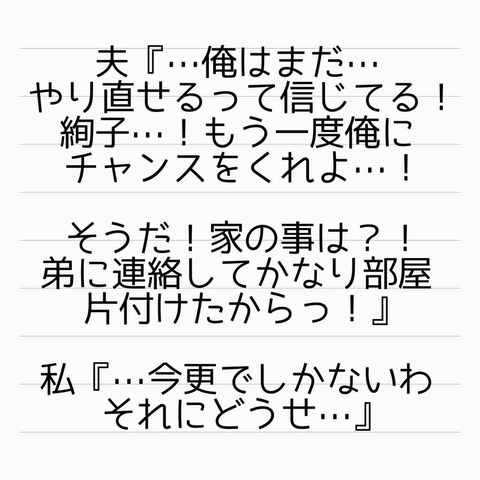 夫『…俺はまだ…
やり直せるって信じてる！
絢子…！もう一度俺に
チャンスをくれよ…！
そうだ！家の事は？！
弟に連絡してかなり部屋
片付けたからっ！』
私『…今更でしかないわ
それにどうせ…』